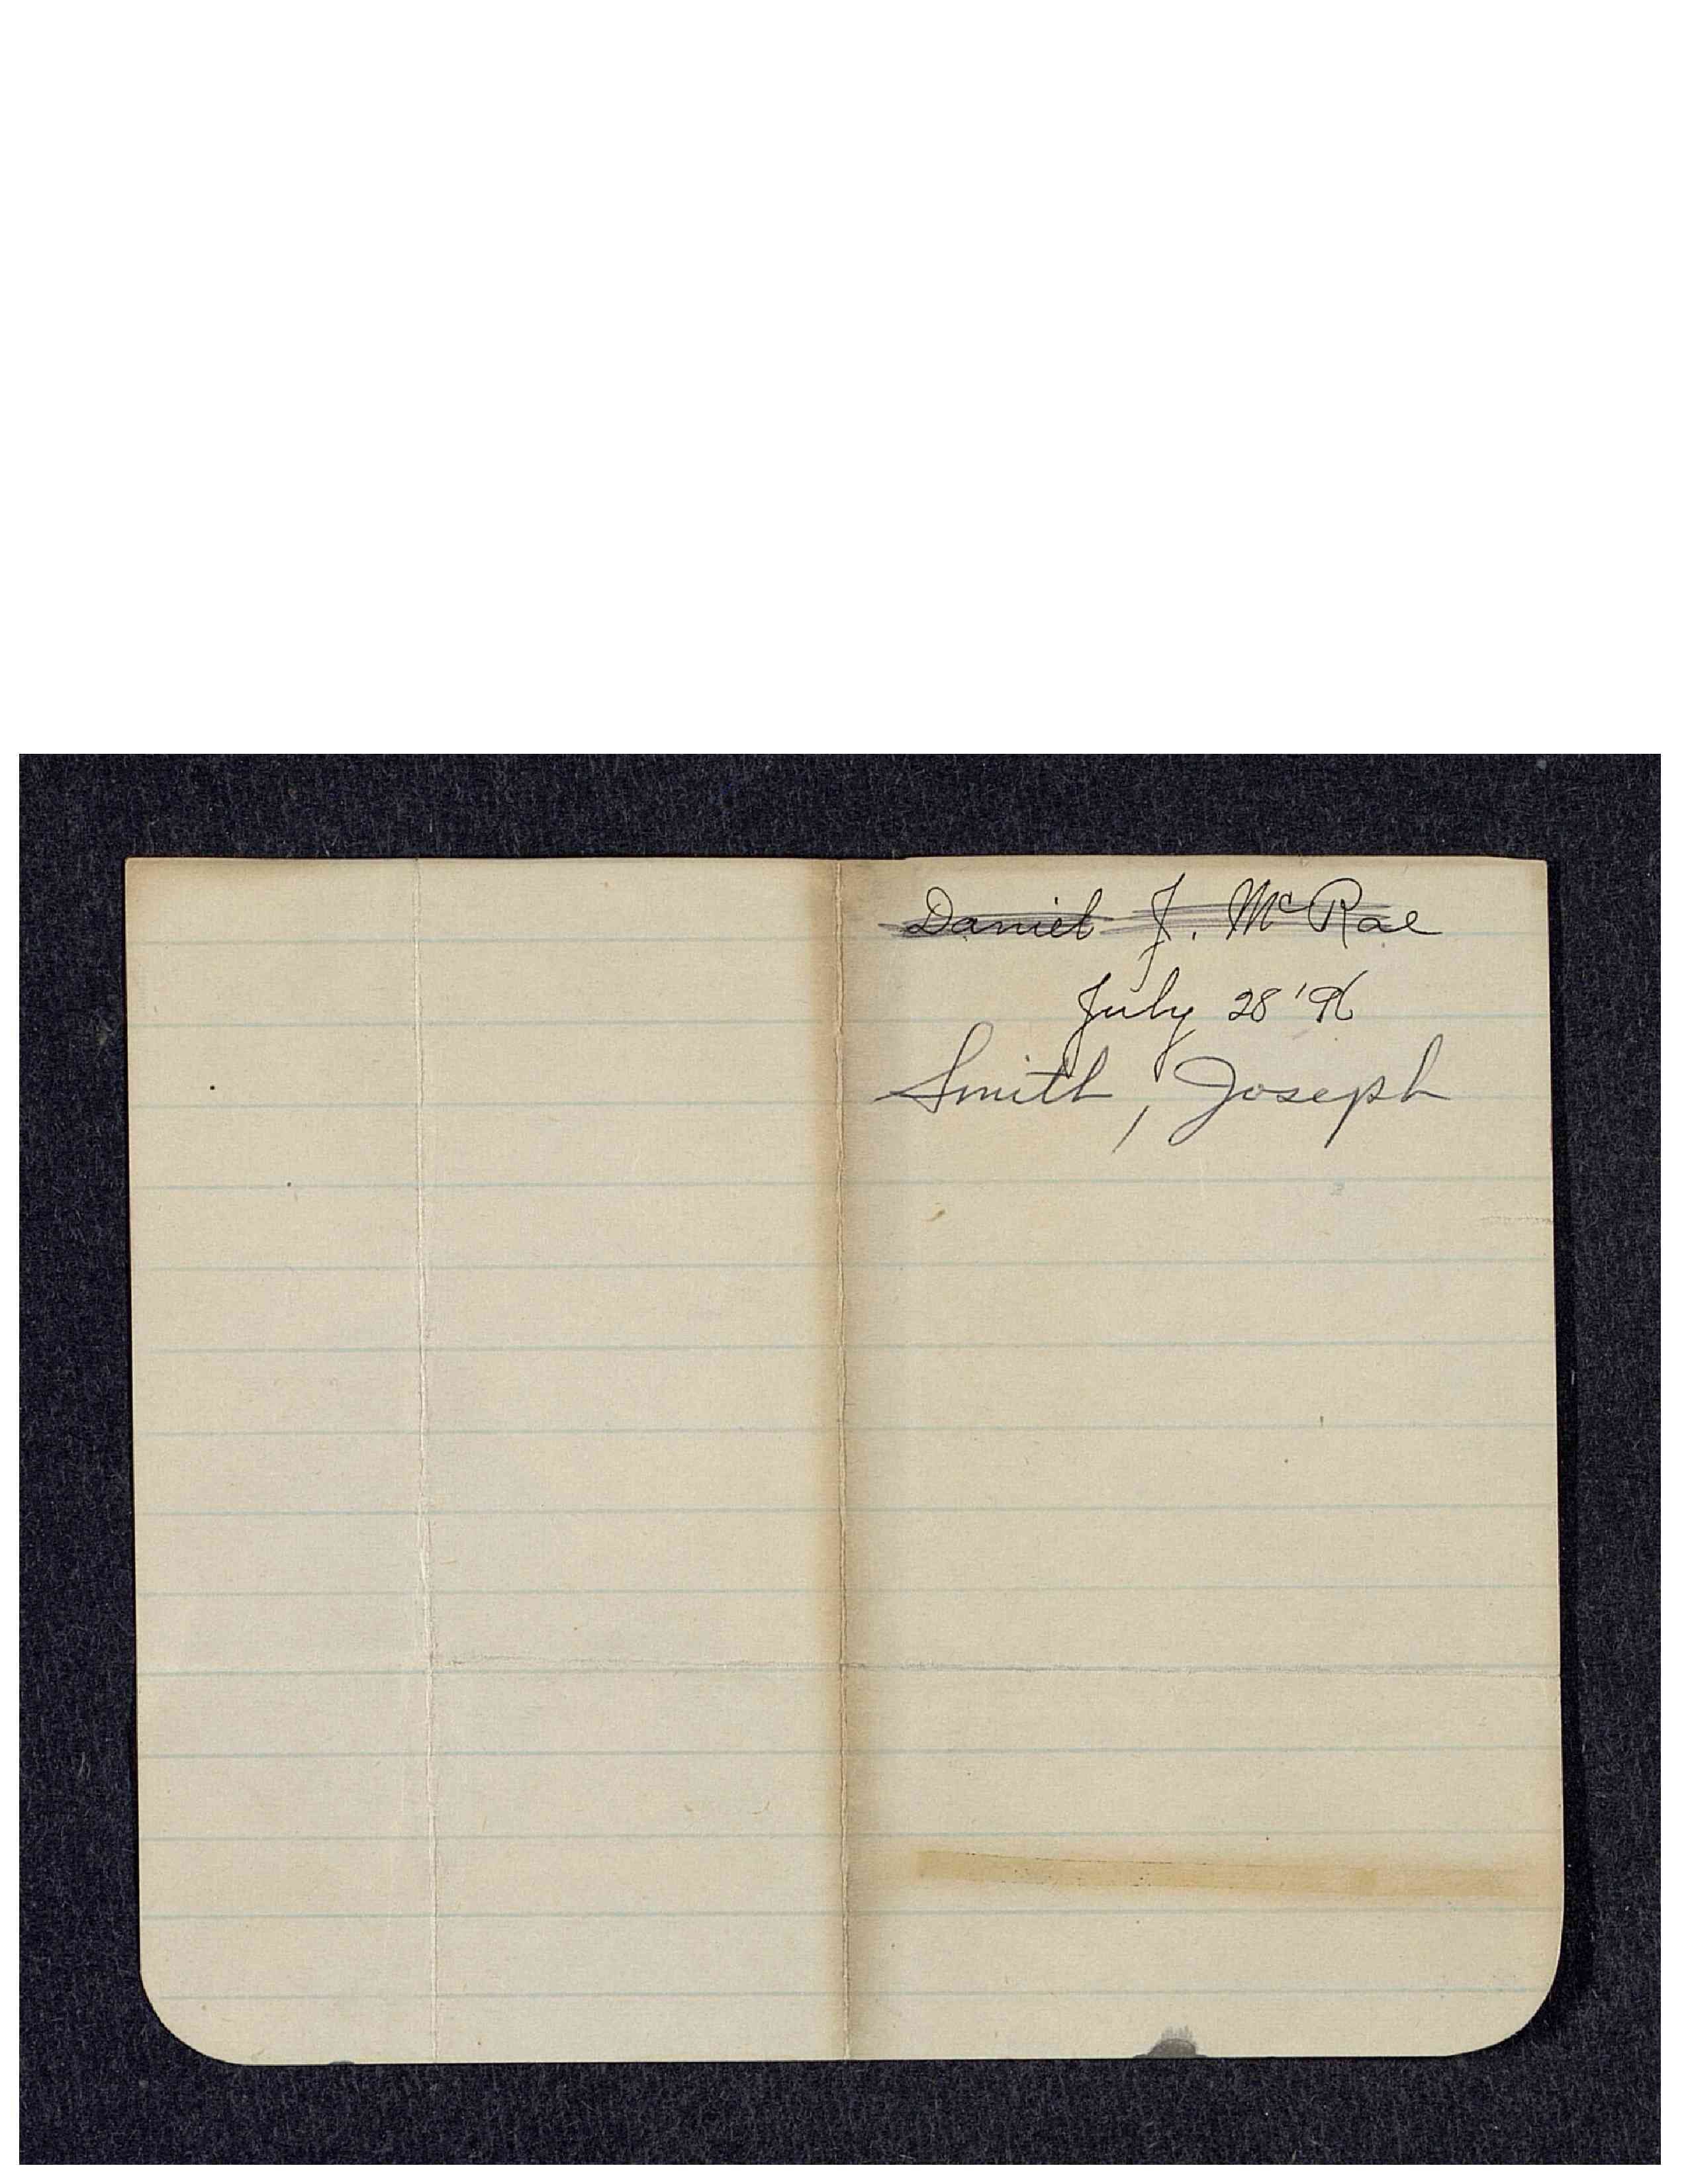 Daniel J. McRae
July 28 '96
Smith, Joseph